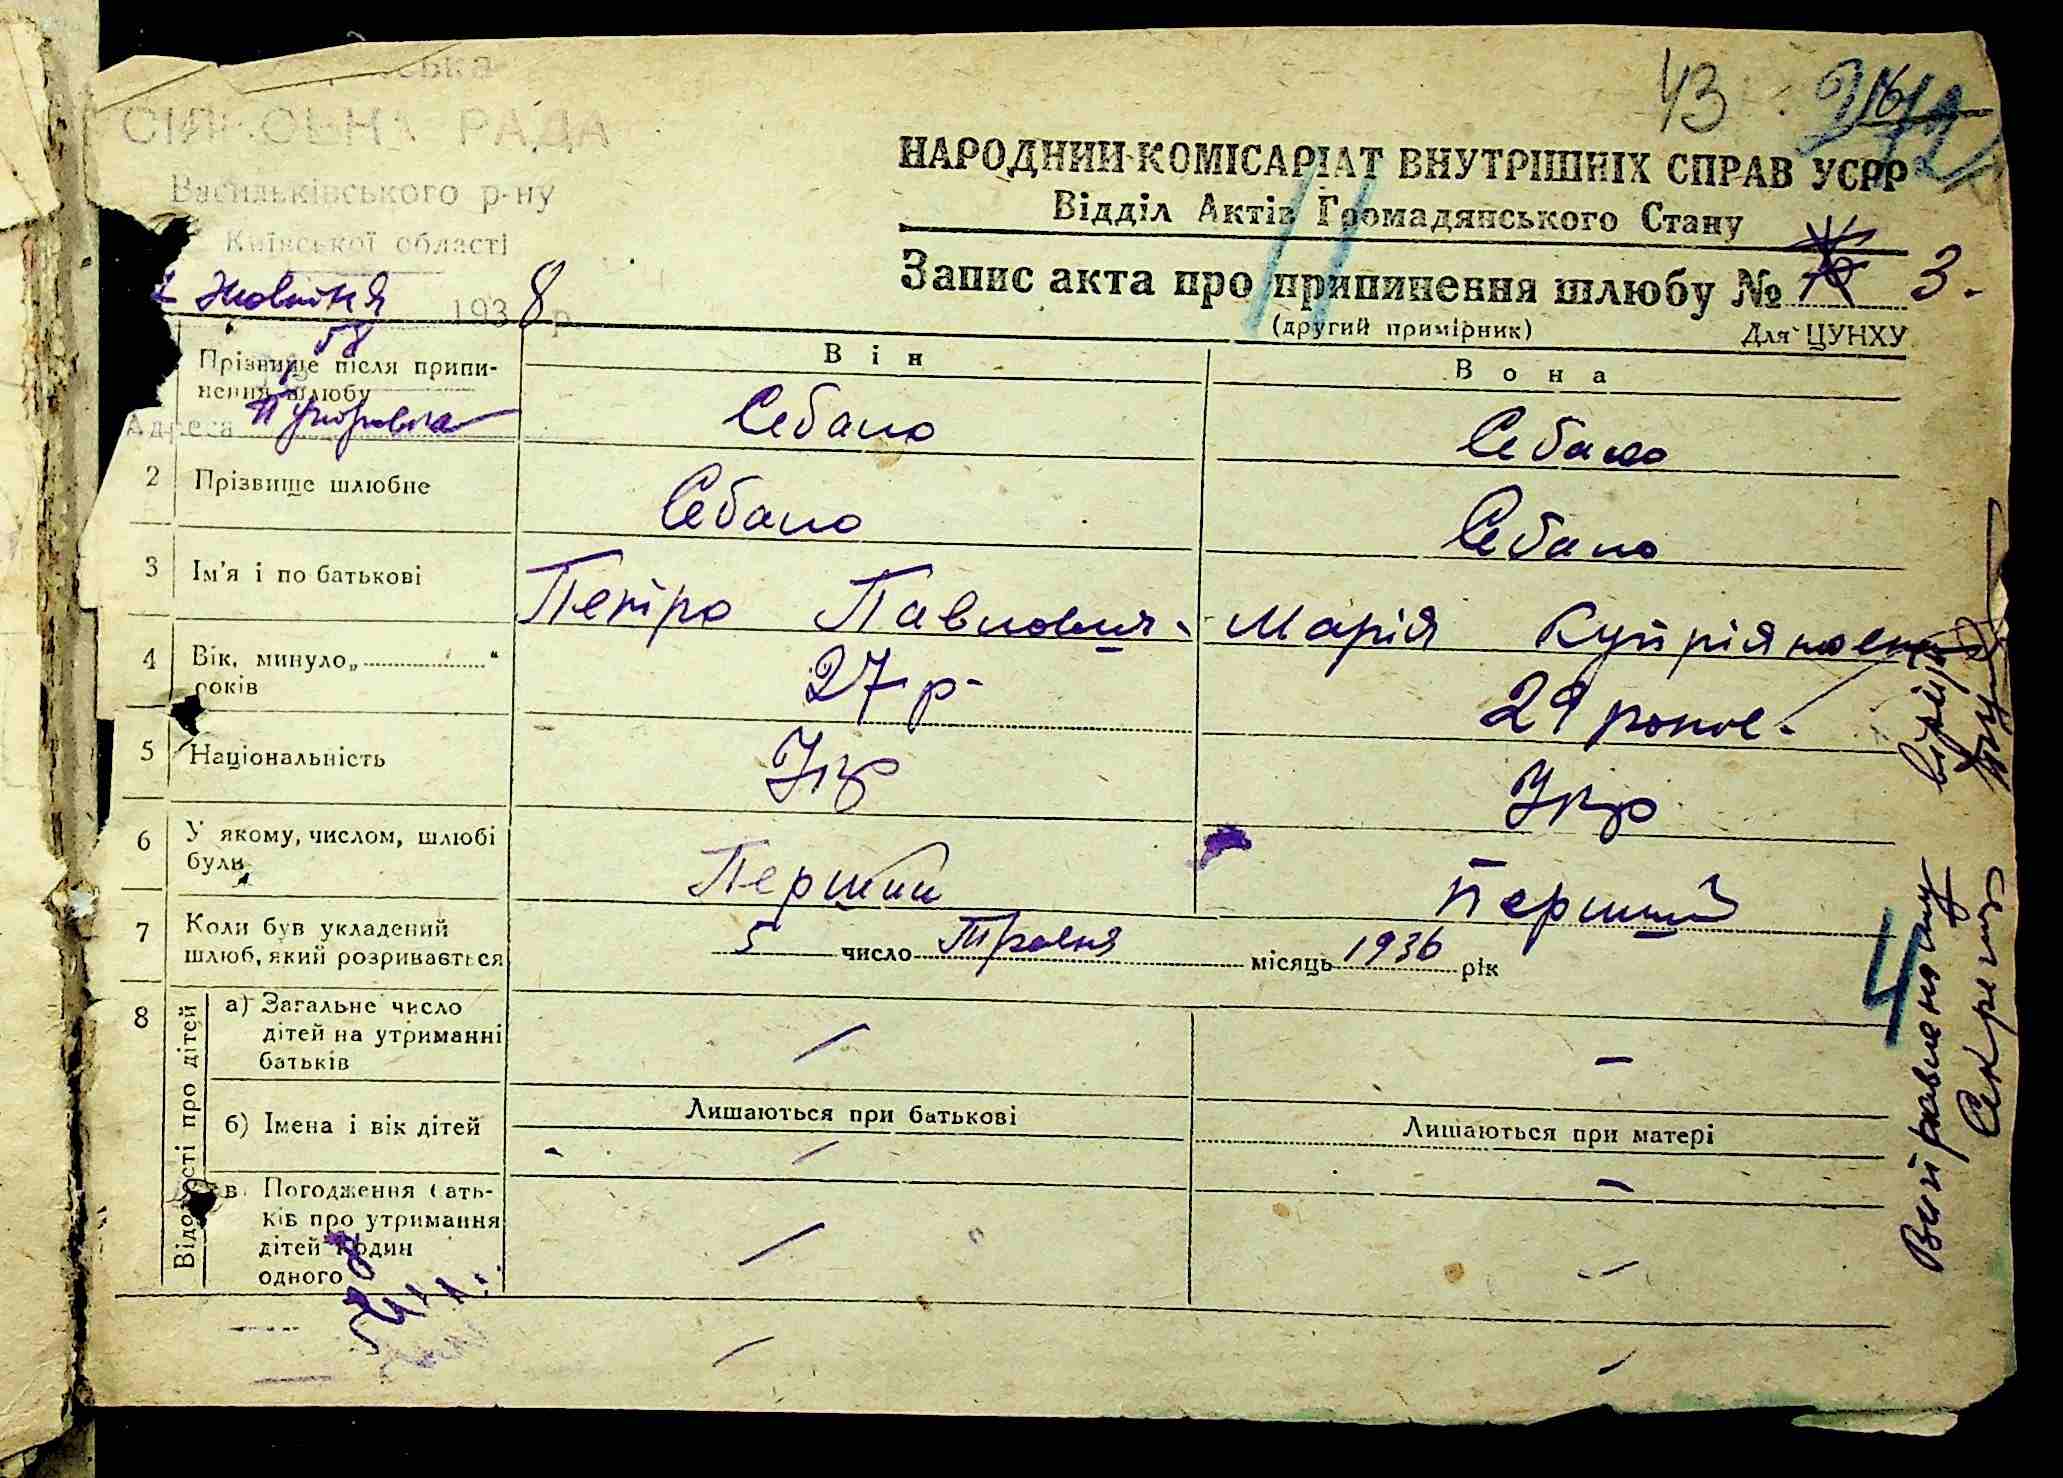 СІЛЬСЬКА РАДА
Васильківського р-ну
Київської області
Жовтня 1938 р.
58
Адреса
43
НАРОДНИЙ КОМІСАРІАТ ВНУТРІШНІХ СПРАВ УСРР
Відділ Актів Громадянського Стану
Запис акта про припинення шлюбу № 3.
(другий примірник) Для ЦУНХУ
11
Він Вона
Прізвище після припи-
нення шлюбу
Себало Себало
2 Прізвище шлюбне Себало Себало
3 Ім'я і по батькові Петро Павлович Марія Купріяновна
4 Вік, минуло „ “
років
27 р- 29 років-
5 Національність Укр Укр
6 У якому, числом, шлюбі
були
Перший Перший
7 Коли був укладений
шлюб, який розривається
5 число Травня місяць 1936 рік
8 Відомості про дітей
а) Загальне число
дітей на утриманні
батьків
/ –
б) Імена і вік дітей Лишаються при батькові Лишаються при матері
/ –
в) Погодження бать-
ків про утримання
дітей один
одного
/ –
/ /
4
Виправленому
Секретар